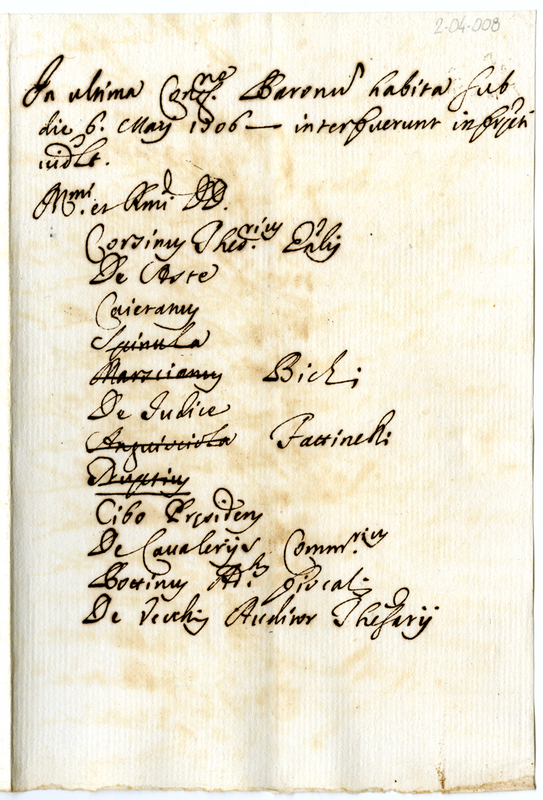 2-04-008
In ultima Congne Baronu habita sub
die 6. May 1706 — interfuerunt infrpti
vidlt.
Illmi. et Rmi. DD.
Corsinus Thesrius Gnlis
De Aste
Caietanus
Spinula
Marscianus Bichi
De Judice
Anguisciola Fattinelli
Ruffus
Cibo Presidens
De Cavalerijs Commrius
Bottinus Adv. Fiscalis
De Vecchis Auditor Thesarij